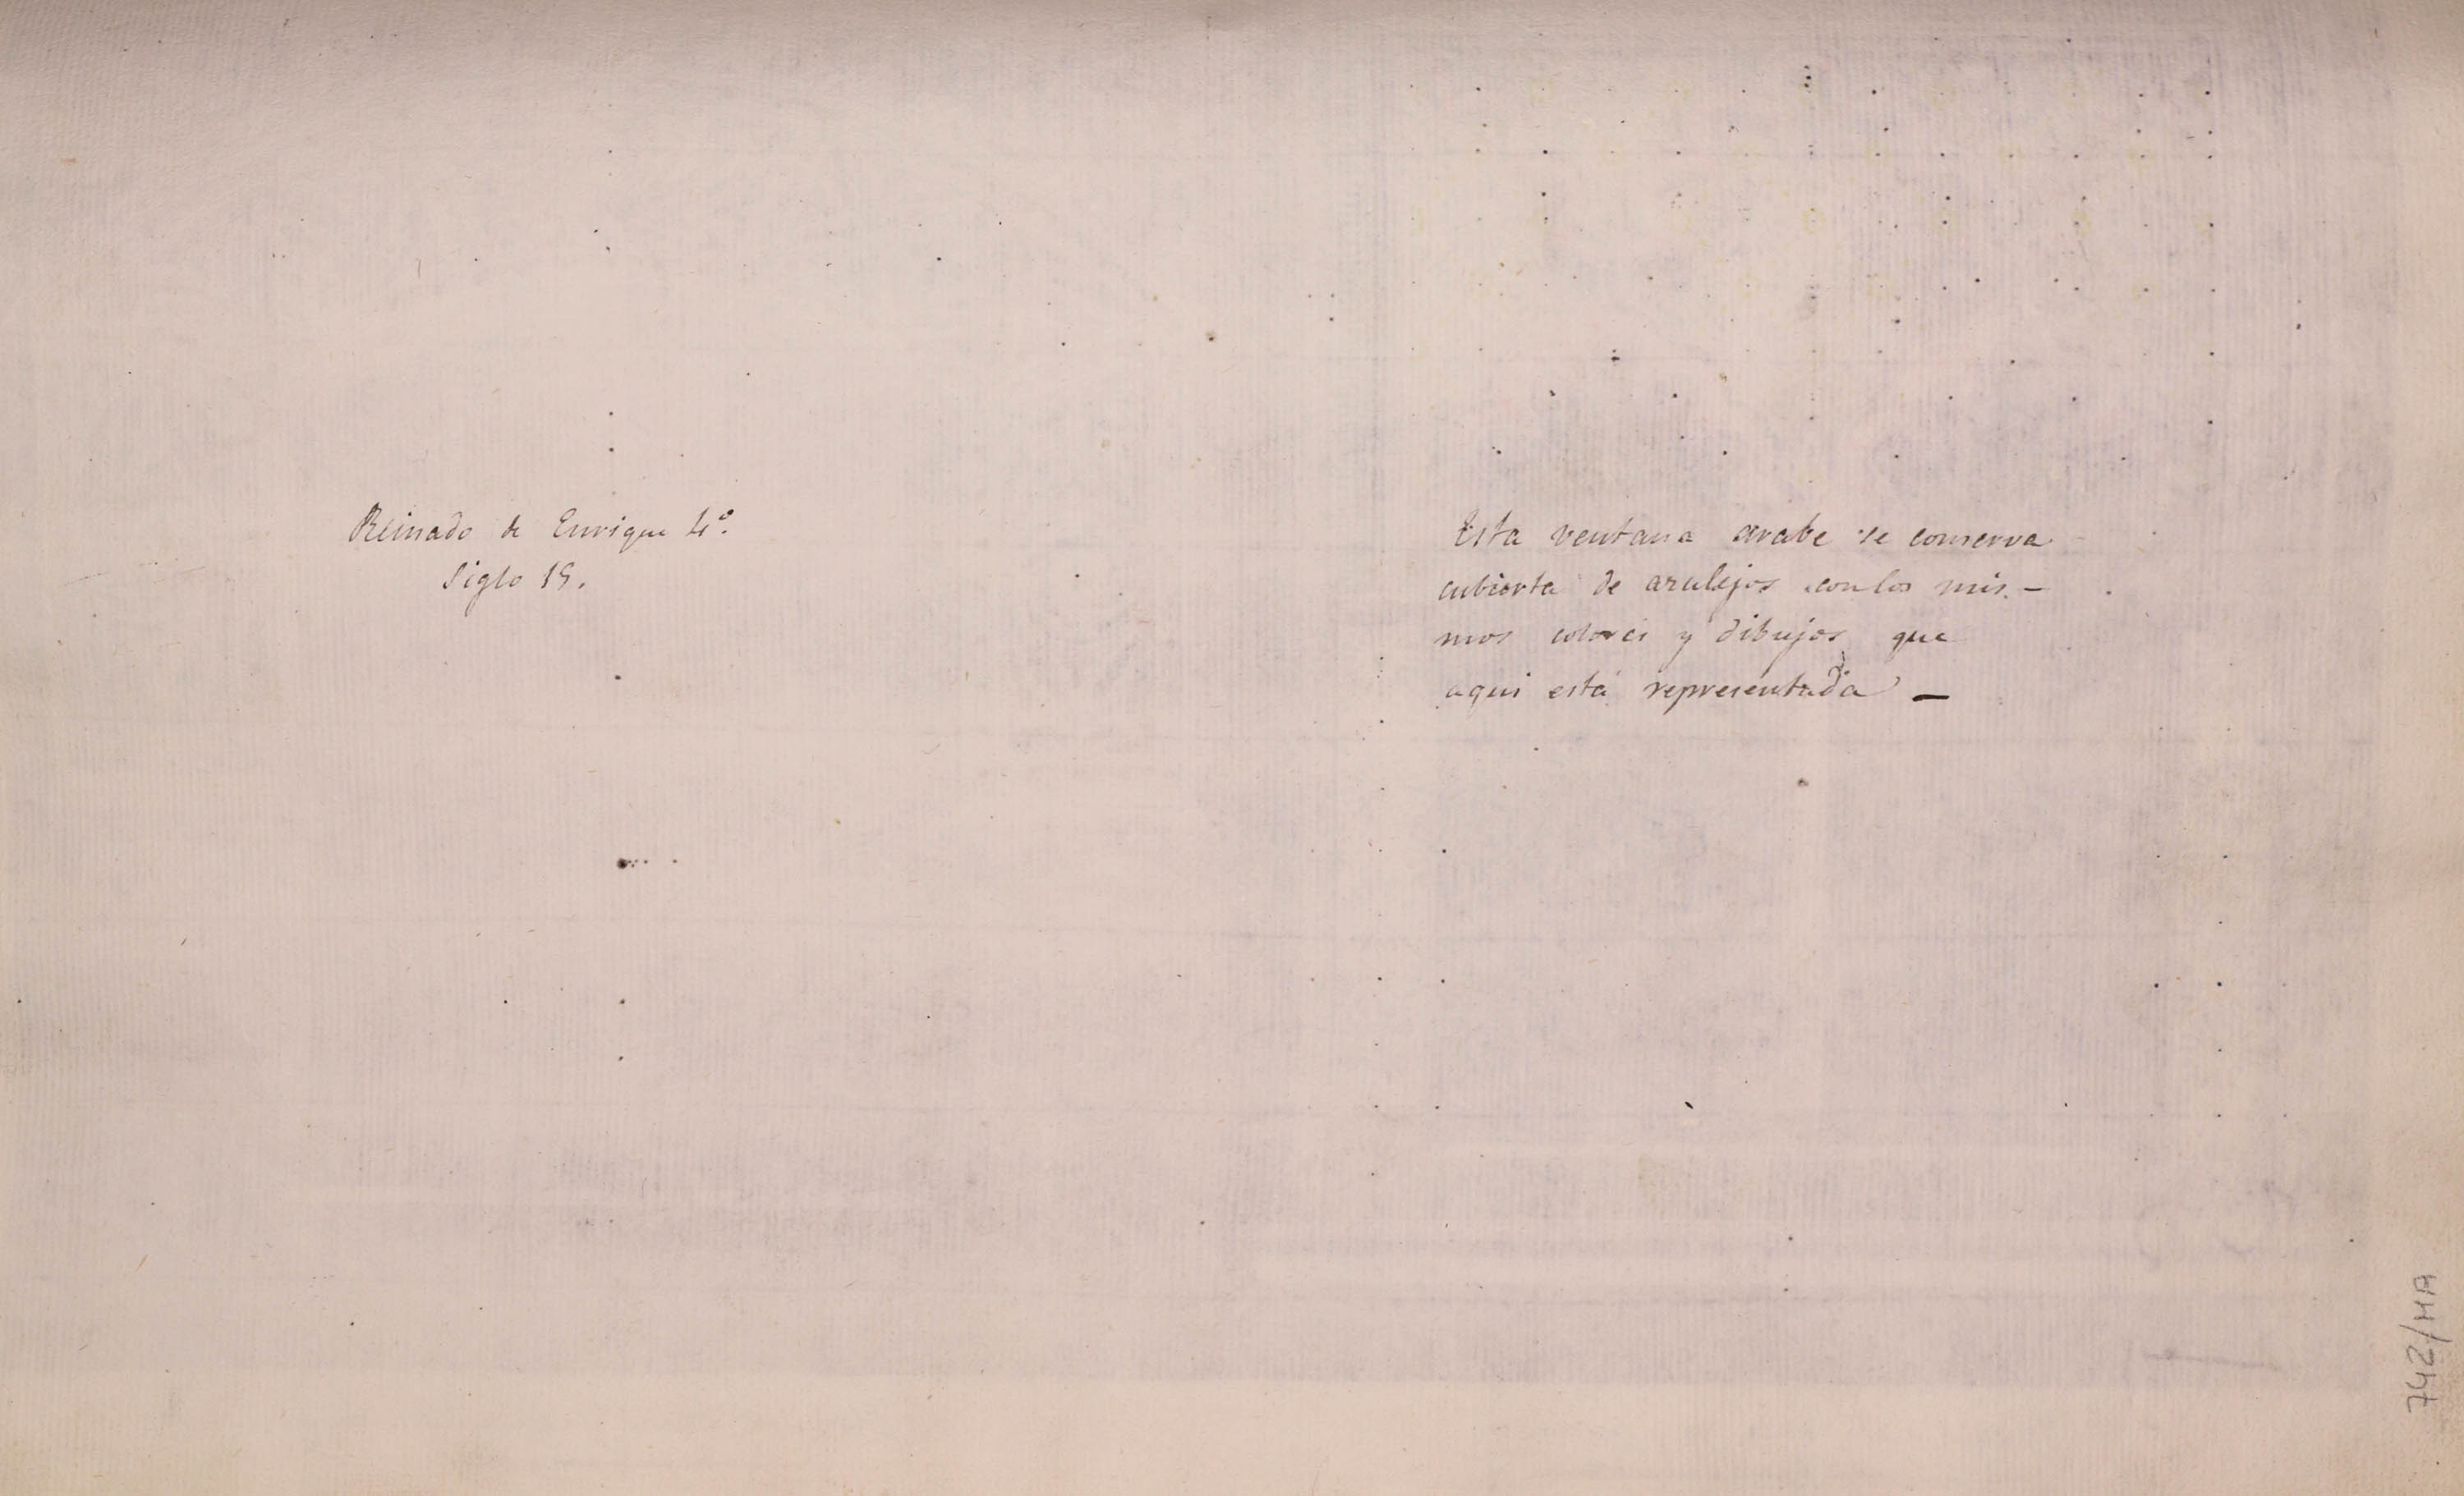 Reinado de Enrique 4º.
Siglo 15.
Esta ventana arabe se conserva
cubierta de azulejos con los mis-
mos colores y dibujos que
aqui está representada —
742/MA